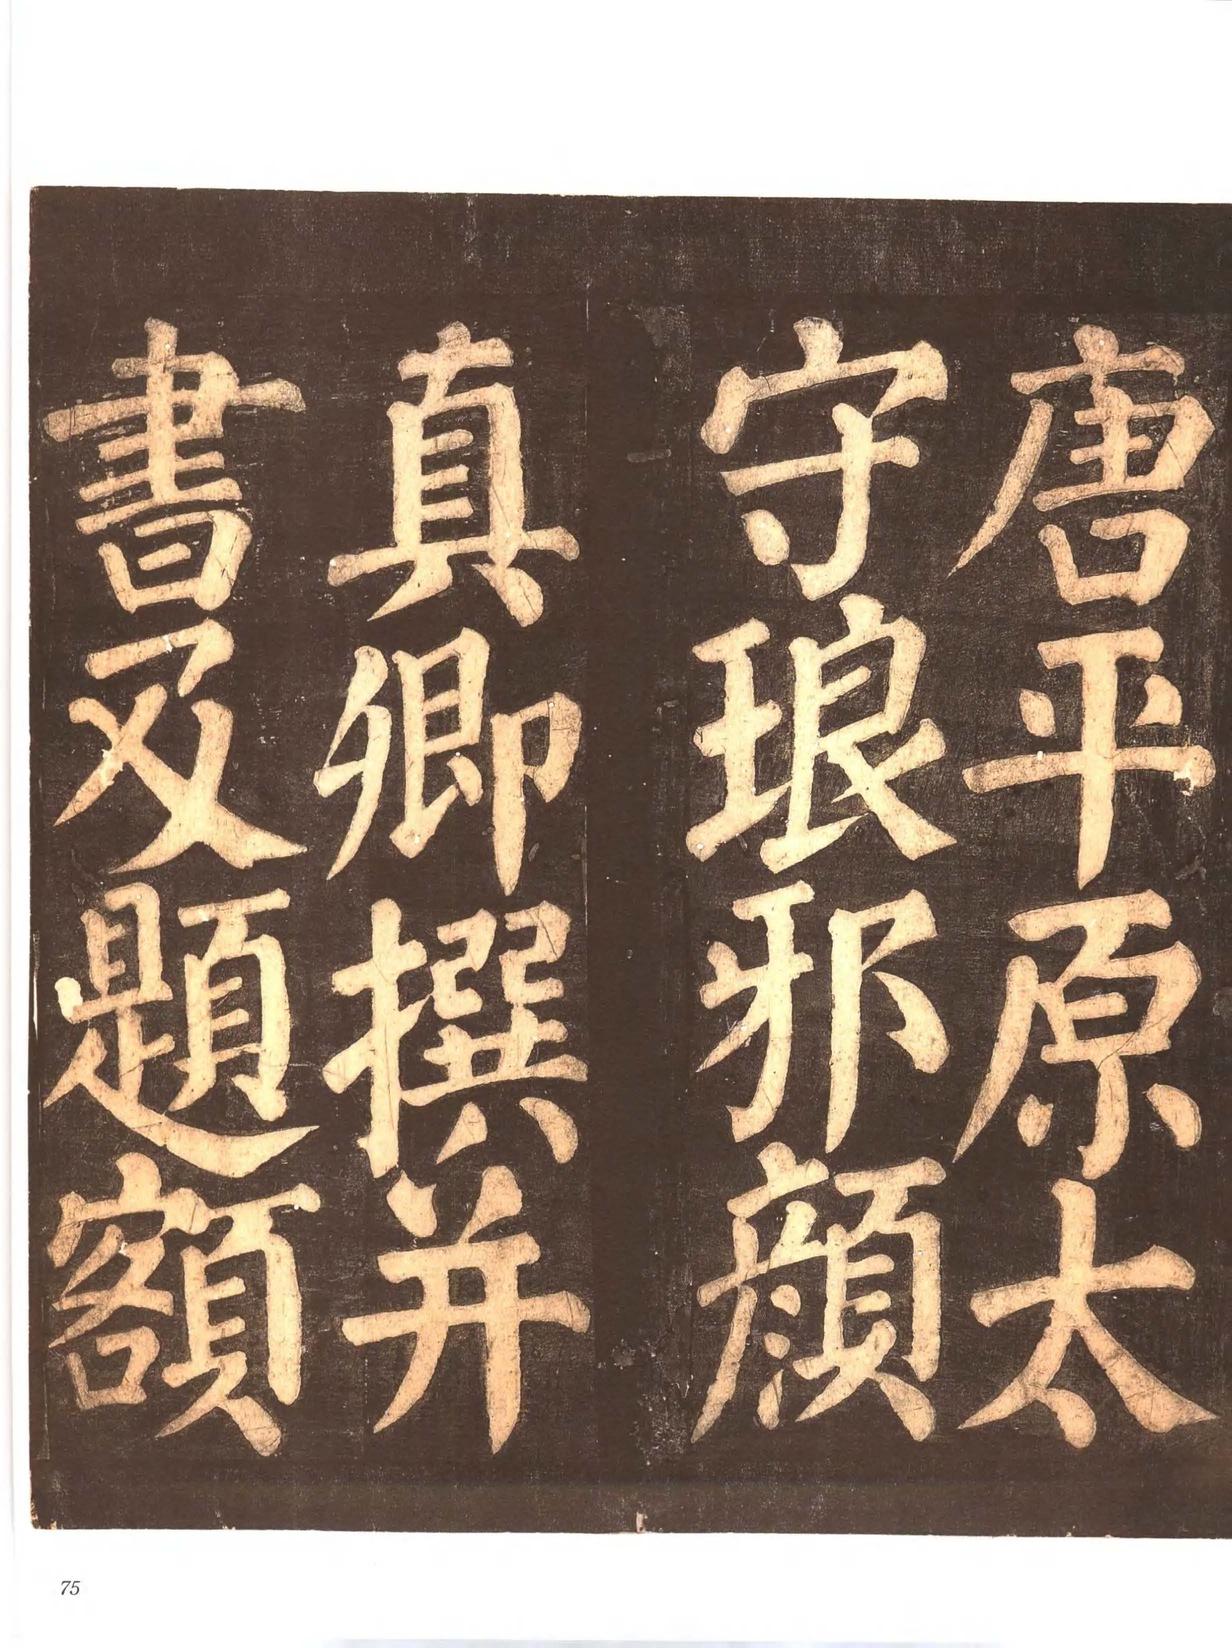 唐平原太
守琅邪顔
真卿撰并
書及題額
75